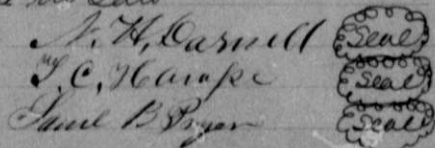 N. H. Darnell Seal
T. C. Hawpe Seal
Saml B Pryor Seal